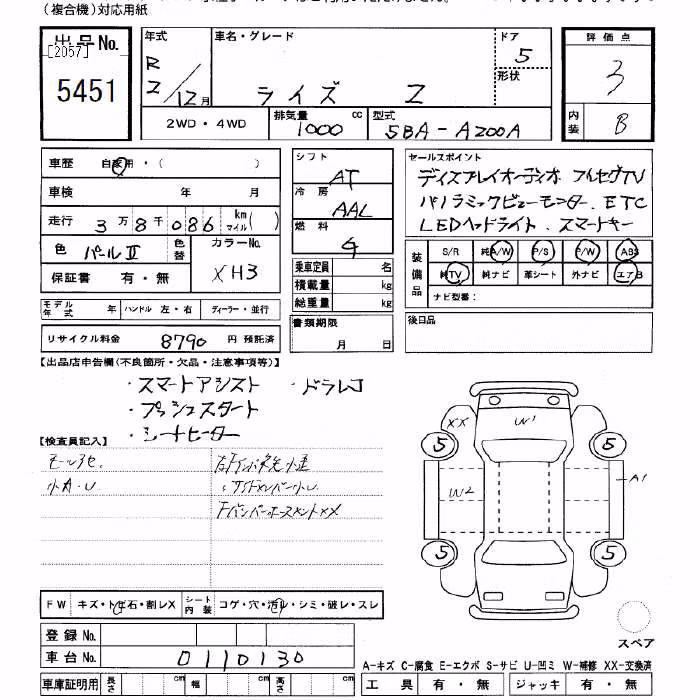 (複合機)対応用紙
出品No.
[2057]
5451
年式
R
2/12月
車名・グレード
ライズ Z
ドア
5
形状
評価点
3
内装
B
2WD・4WD
排気量
1000 cc
型式
5BA-A200A
車歴 自家用・( )
車検 年 月
走行 3万8千086 km マイル( )
色 パールⅡ
色替
カラーNo.
XH3
保証書 有・無
シフト
AT
冷房
AAC
燃料
G
乗車定員 名
積載量 kg
総重量 kg
セールスポイント
ディスプレイオーディオ フルセグTV
パノラミックビューモニター、ETC
LEDヘッドライト、スマートキー
装備品
S/R 純A/W P/S P/W ABS
純TV 純ナビ 革シート 外ナビ エアB
ナビ型番:
モデル年式 年 ハンドル 左・右 ディーラー・並行
リサイクル料金 8790 円 預託済
書類期限
月 日
後日品
【出品店申告欄(不良箇所・欠品・注意事項等)】
・スマートアシスト ・ドラレコ
・プッシュスタート
・シートヒーター
【検査員記入】
小A・U
XX
W1
W2
A1
5
5
5
5
FW キズ・トビ石・割レX
シート内装 コゲ・穴・汚レ・シミ・破レ・スレ
登録No.
車台No.
0110130
車庫証明用 長さ cm 幅 cm 高さ cm
スペア
A-キズ C-腐食 E-エクボ S-サビ U-凹ミ W-補修 XX-交換済
工具 有・無 ジャッキ 有・無